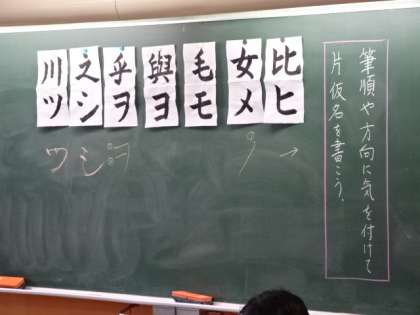 筆順や方向に気を付けて
片仮名を書こう。
比ヒ
女メ
毛モ
與ヨ
乎ヲ
之シ
川ツ
ヲ
シ
ツ